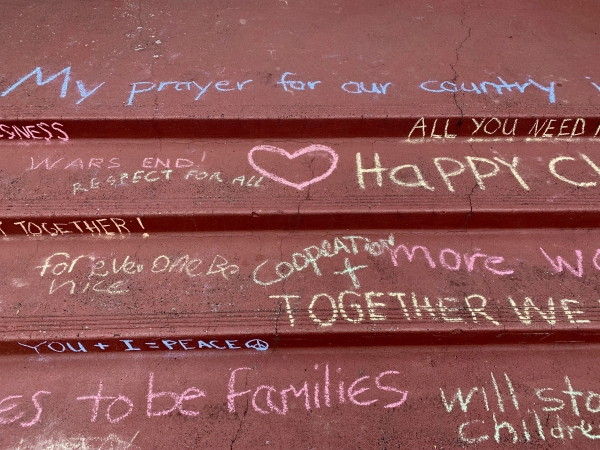 My prayer for our country i
SNESS
ALL YOU NEED
WARS END!
RESPECT FOR ALL
HAPPY C
TOGETHER!
forever one Be
nice
Cooperation
+
more wo
TOGETHER WE
YOU + I = PEACE
es to be families
will sto
childre